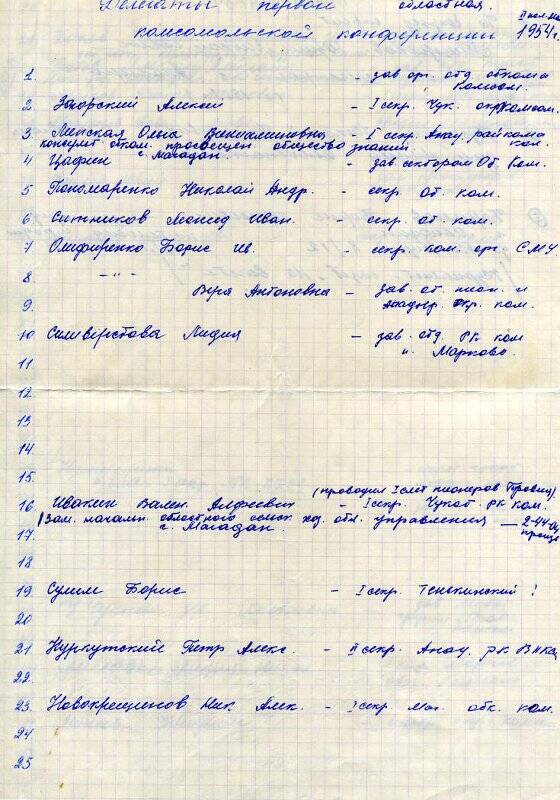 Делегаты первой областная
комсомольской конференции 1954г.
1 - зав. орг. отд. обкома
комсом.
2 Загорский Алексей - I секр. Чук. окркомсом.
3 Линская Ольга Вениаминовна - I секр. Анад. райкома
консульт. отком. просвещен. общество знаний ком.
г. Магадан.
4 Цафин - зав. сектором Об. Ком.
5 Пономаренко Николай Андр. - секр. об. ком.
6 Ситников Леонид Иван. - секр. об. ком.
7 Олифиренко Борис Ив. - секр. ком. орг. СМУ
8. -"-"-
Вера Антоновна - зав. от. пион. и
9. окр. ком.
10 Силиверстова Лидия - зав. отд. РК ком
п. Марково.
11
12
13
14
15.
(проводил I слет пионеров
16 Ивакин Вален. Алфеевич - I секр. Чукот. рк ком.
/Зам. начальн. областного сельск. хоз. обл. управления — 2-44-
17. г. Магадан.
18
19 Сулим Борис - I секр. Тенькинский !
20
21 Куркутский Петр Алекс. - II секр. Анад. рк ВЛКС
22.
23. Новокрещенов Ник. Алек. - I секр. Маг. обк. ком.
24
25